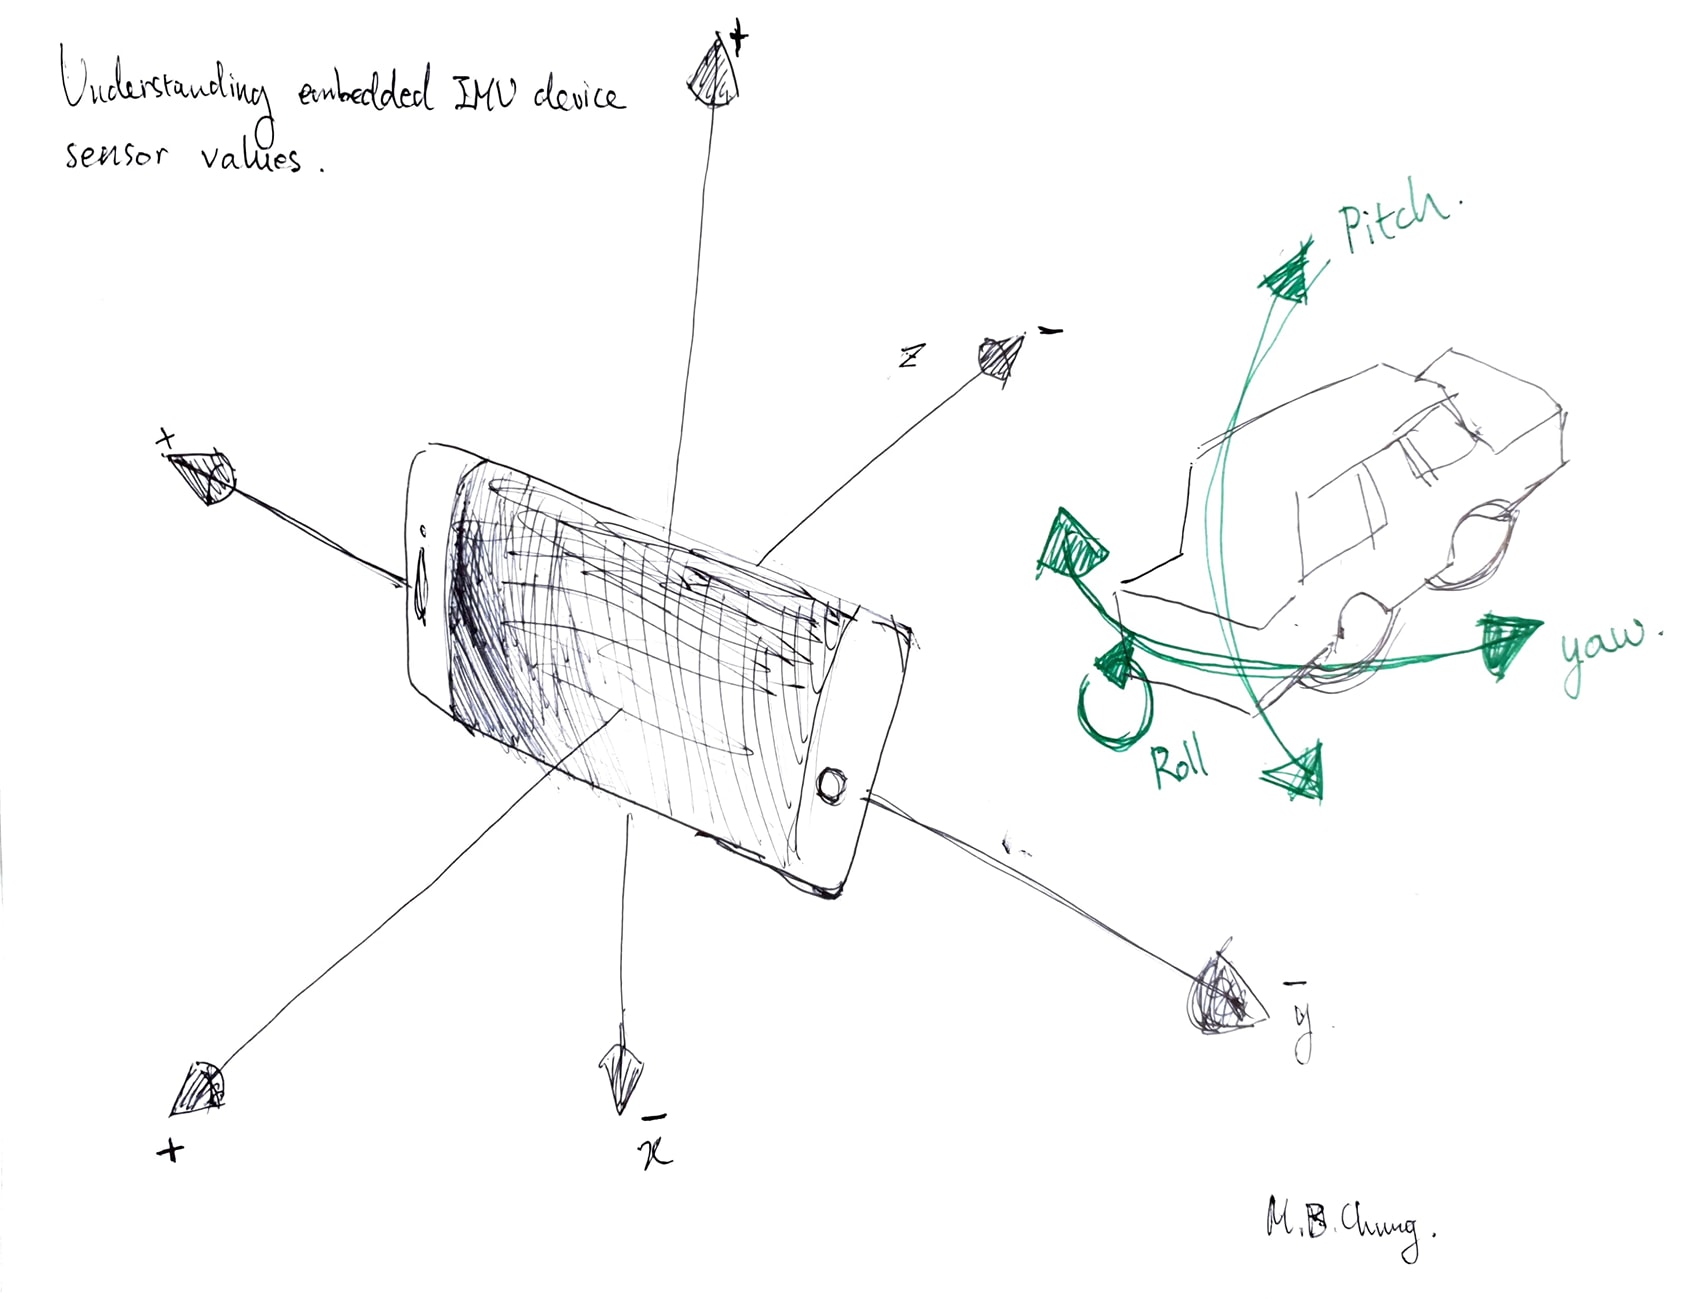 Understanding embedded IMU device
sensor values.
+
Pitch.
z -
+
yaw.
Roll
-
y.
+
-
x
M.B.Chung.